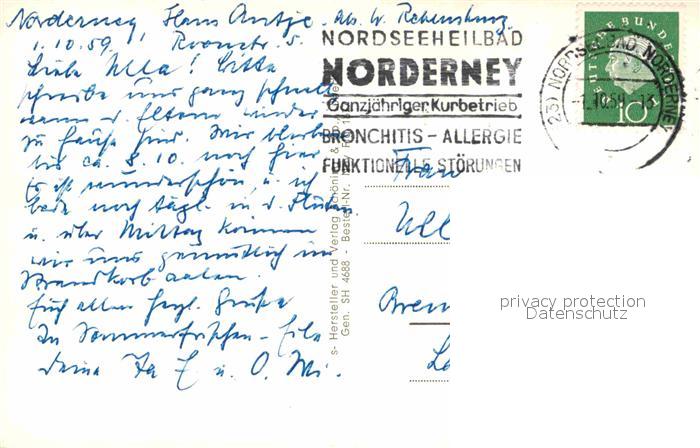 Norderney, Haus Antje, Abs. W. Rebensburg
1.10.59, Roonstr. 5.
Liebe Ulla! Bitte
schreibe uns ganz schnell
wann d. Eltern wieder
zu Hause sind. Wir bleiben
bis ca. 8.10. noch hier
es ist wunderschön, u. ich
bade noch tägl. in d. Fluten
u. über Mittag können
wir uns gemütlich im
Strandkorb aalen.
Euch allen herzl. Grüße
In Sommerfrischen-Eile
deine u. O. Wi.
NORDSEEHEILBAD
NORDERNEY
Ganzjähriger Kurbetrieb
BRONCHITIS - ALLERGIE
FUNKTIONELLE STÖRUNGEN
DEUTSCHE BUNDESPOST
10
NORDSEEBAD NORDERNEY
10.59-13
Frau
Ull
Brem
s- Hersteller und Verlag Schöning &
Gen. SH 4688 - Bestell-Nr.
privacy protection
Datenschutz